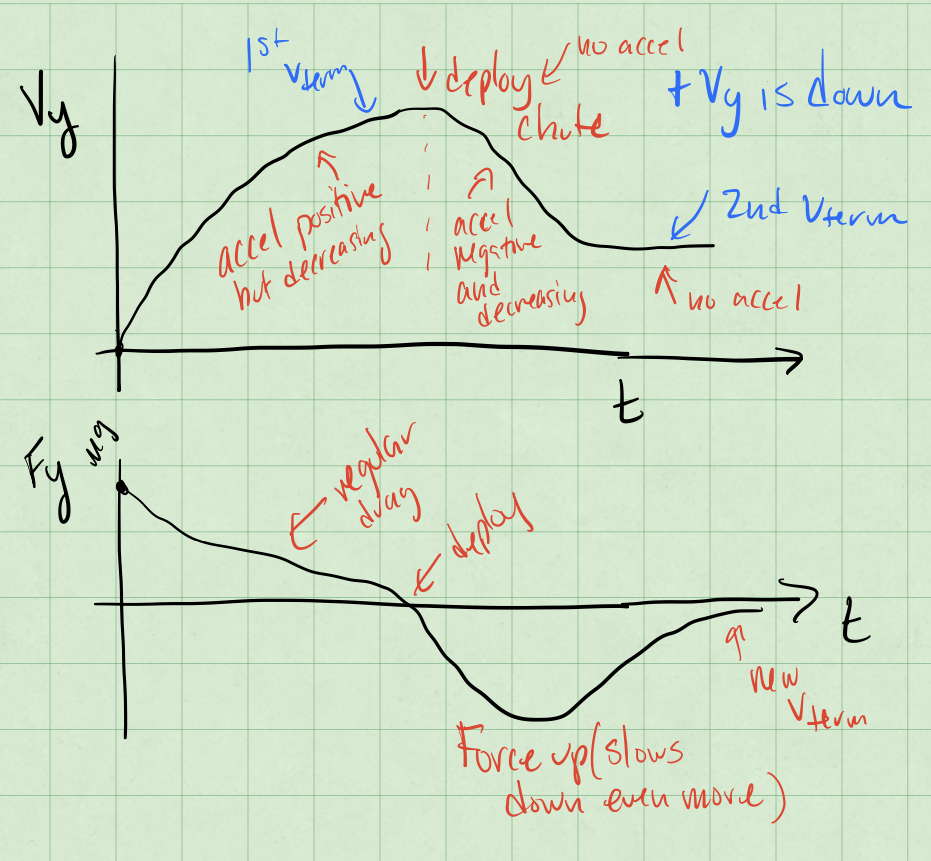 Vy
1st
Vterm
deploy
chute
no accel
+Vy is down
accel positive
but decreasing
accel
negative
and
decreasing
2nd Vterm
no accel
t
Fy
mg
regular
drag
deploy
t
new
Vterm
Force up (slows
down even more)